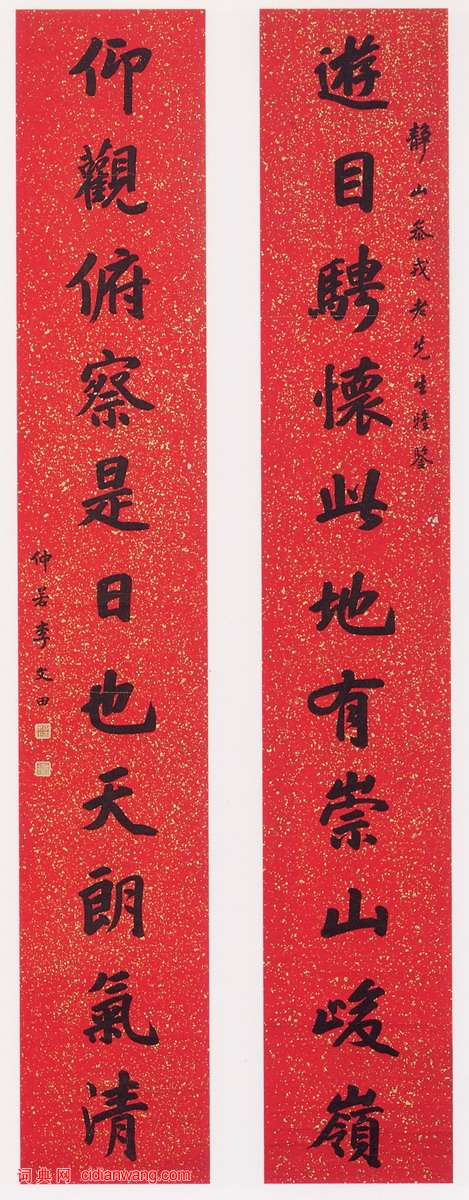 遊目騁懷此地有崇山峻嶺
靜山叅戎老先生雅鑒
仰觀俯察是日也天朗氣清
仲若李文田
词典网 cidianwang.com